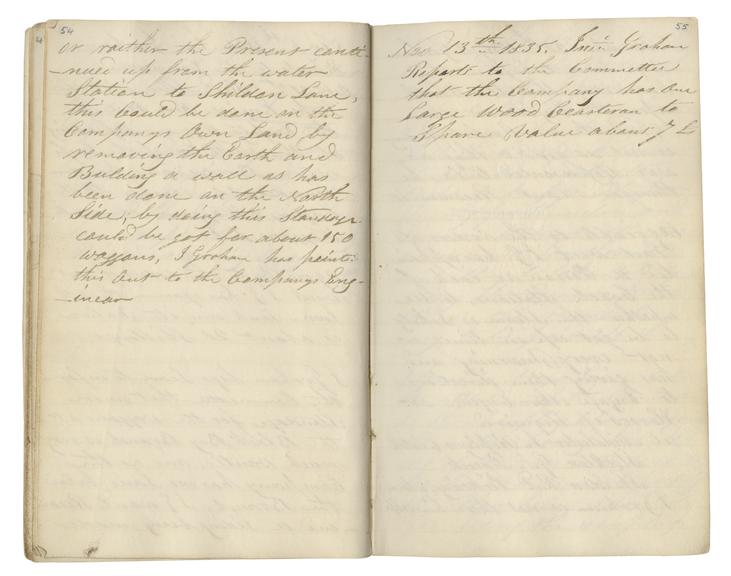 54
or raither the Present conti-
-nued up from the water
Station to Shildon Lane,
this Could be done on the
Companys Own Land by
removing the Earth and
Building a wall as has
been done on the North
Side, by doing this Standage
could be got for about 150
waggons, I Graham has point
this Out to the Companys Eng-
-inear
55
Nov 13th 1835. Graham
Reports to the Committee
that the Company has One
Large Wood Ceasteran to
Spare Value about 7 £